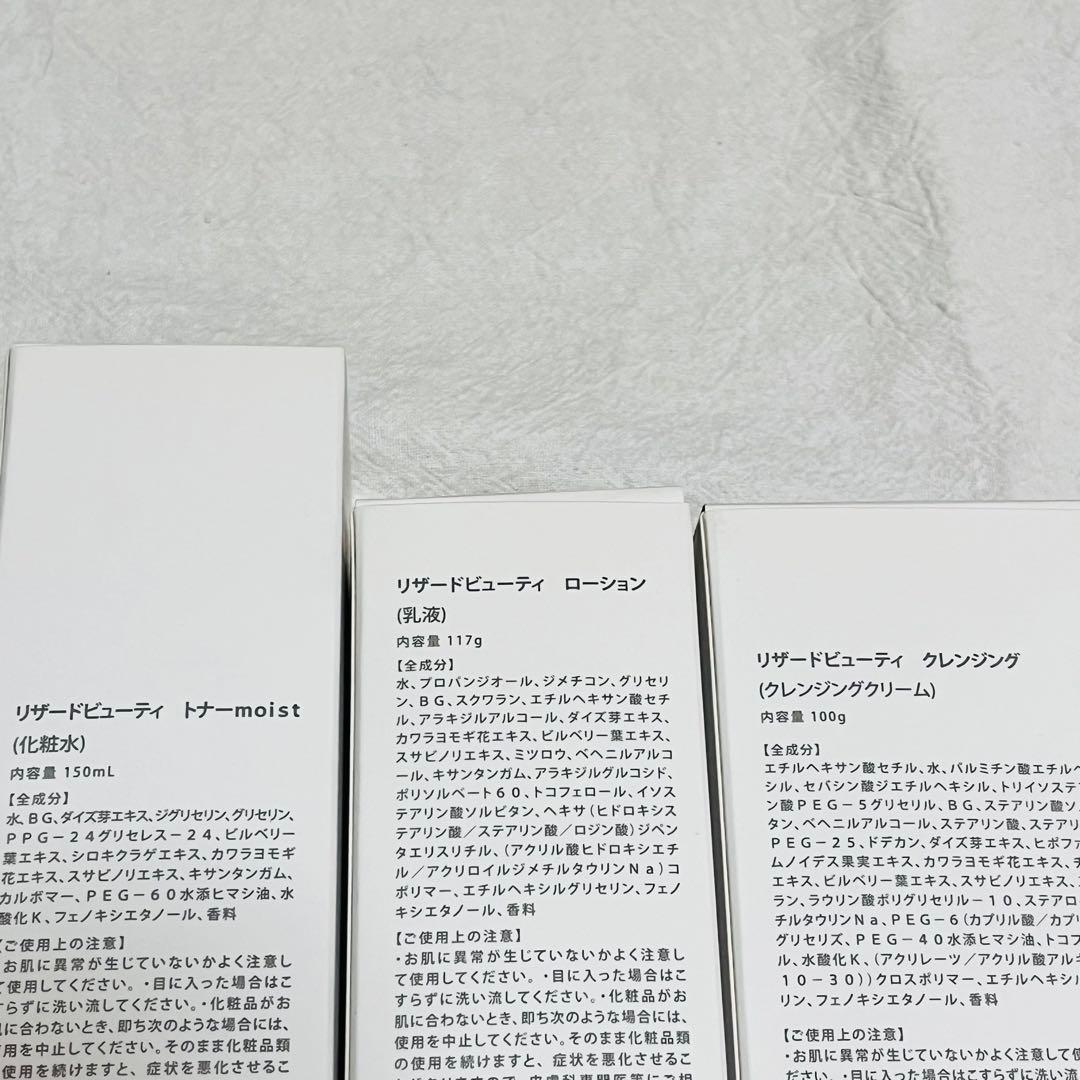 リザードビューティ　トナーmoist
(化粧水)
内容量 150mL
【全成分】
水、BG、ダイズ芽エキス、ジグリセリン、グリセリン、
PPG－24グリセレス－24、ビルベリー
葉エキス、シロキクラゲエキス、カワラヨモギ
花エキス、スサビノリエキス、キサンタンガム、
カルボマー、PEG－60水添ヒマシ油、水
酸化K、フェノキシエタノール、香料
【ご使用上の注意】
お肌に異常が生じていないかよく注意し
て使用してください。・目に入った場合はこ
すらずに洗い流してください。・化粧品がお
肌に合わないとき、即ち次のような場合には、
使用を中止してください。そのまま化粧品類
の使用を続けますと、症状を悪化させるこ
リザードビューティ　ローション
(乳液)
内容量 117g
【全成分】
水、プロパンジオール、ジメチコン、グリセリ
ン、BG、スクワラン、エチルヘキサン酸セチ
ル、アラキジルアルコール、ダイズ芽エキス、
カワラヨモギ花エキス、ビルベリー葉エキス、
スサビノリエキス、ミツロウ、ベヘニルアルコ
ール、キサンタンガム、アラキジルグルコシド、
ポリソルベート60、トコフェロール、イソス
テアリン酸ソルビタン、ヘキサ（ヒドロキシス
テアリン酸／ステアリン酸／ロジン酸）ジペン
タエリスリチル、（アクリル酸ヒドロキシエチ
ル／アクリロイルジメチルタウリンNa）コ
ポリマー、エチルヘキシルグリセリン、フェノ
キシエタノール、香料
【ご使用上の注意】
・お肌に異常が生じていないかよく注意し
て使用してください。・目に入った場合はこ
すらずに洗い流してください。・化粧品がお
肌に合わないとき、即ち次のような場合には、
使用を中止してください。そのまま化粧品類
の使用を続けますと、症状を悪化させるこ
とがありますので、皮膚科専門医等にご相
リザードビューティ　クレンジング
(クレンジングクリーム)
内容量 100g
【全成分】
エチルヘキサン酸セチル、水、パルミチン酸エチルヘ
シル、セバシン酸ジエチルヘキシル、トリイソステア
ン酸PEG－5グリセリル、BG、ステアリン酸ソ
タン、ベヘニルアルコール、ステアリン酸、ステアリ
PEG－25、ドデカン、ダイズ芽エキス、ヒポファ
ムノイデス果実エキス、カワラヨモギ花エキス、
エキス、ビルベリー葉エキス、スサビノリエキス、
ラン、ラウリン酸ポリグリセリル－10、ステアロ
チルタウリンNa、PEG－6（カプリル酸／カプ
グリセリズ、PEG－40水添ヒマシ油、トコフ
ル、水酸化K、（アクリレーツ／アクリル酸アルキ
10－30））クロスポリマー、エチルヘキシル
リン、フェノキシエタノール、香料
【ご使用上の注意】
・お肌に異常が生じていないかよく注意して使
ださい。・目に入った場合はこすらずに洗い流